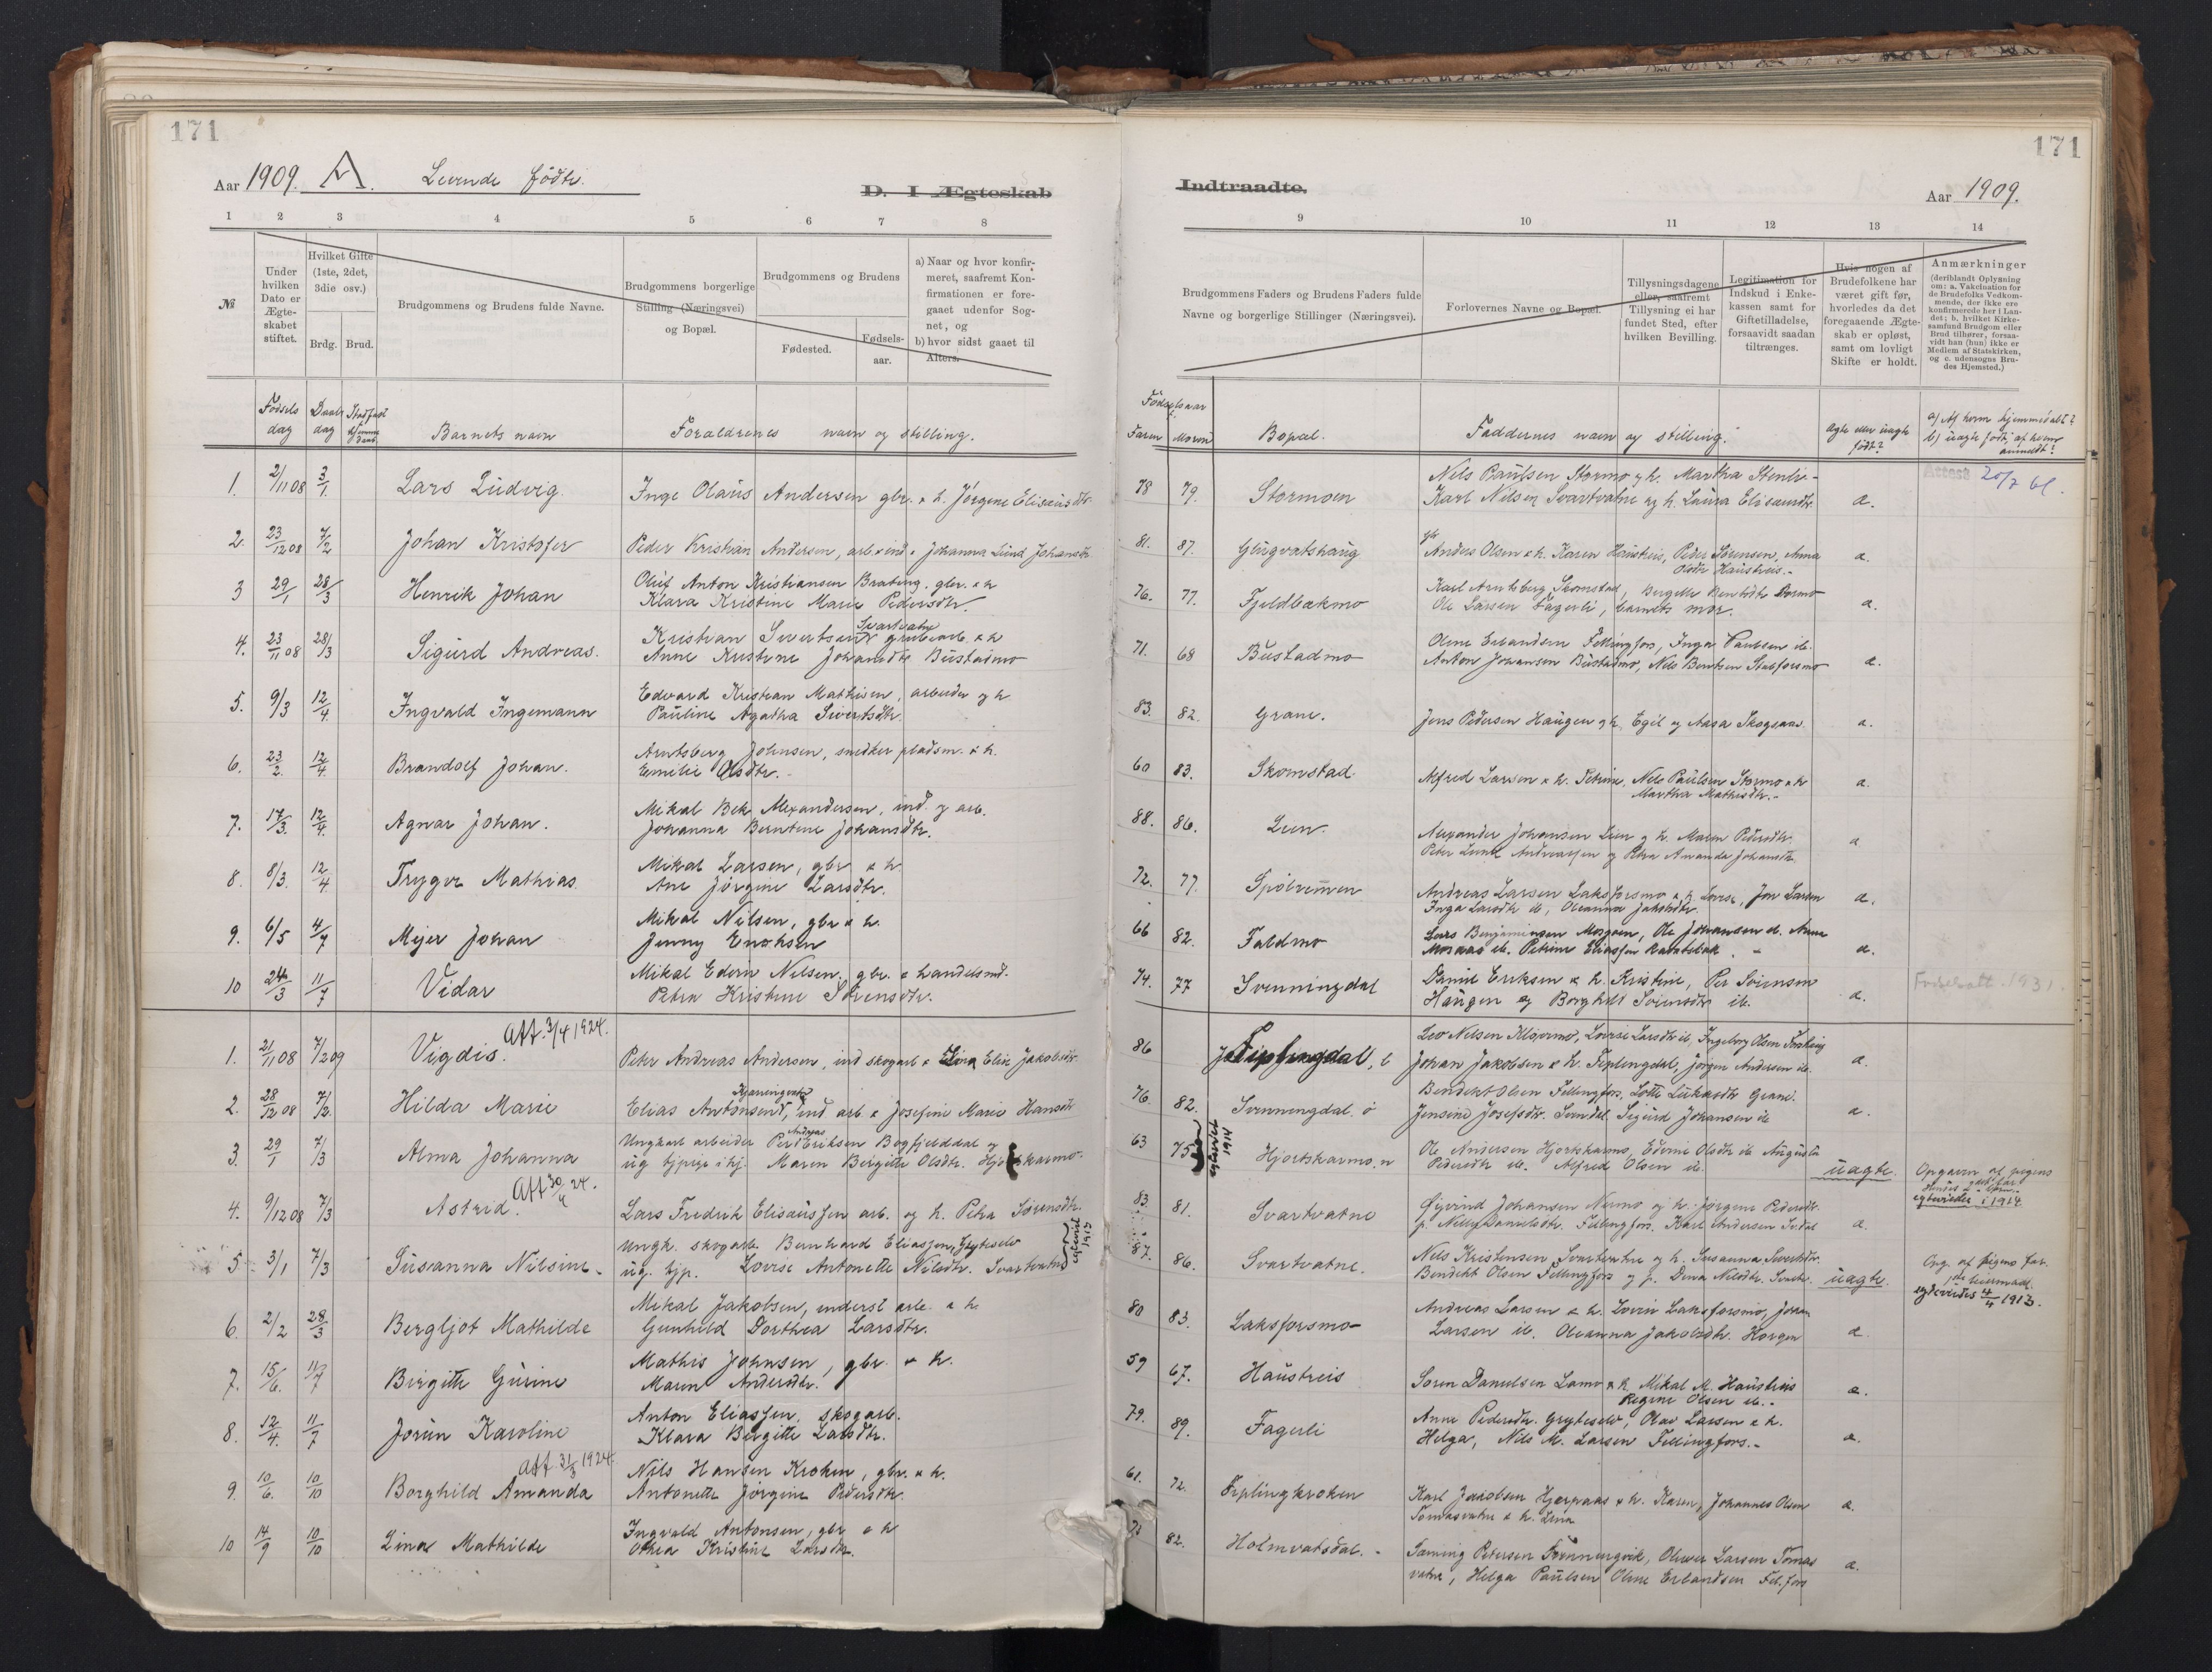 171
Aar 1909. A. Levende födte.
D. I Ægteskab
1 2 3 4 5 6 7 8
№
Under hvilken Dato er Ægteskabet stiftet.
Hvilket Gifte (1ste, 2det, 3die osv.)
Brdg. Brud.
Brudgommens og Brudens fulde Navne.
Brudgommens borgerlige Stilling (Næringsvei) og Bopæl.
Brudgommens og Brudens
Fødested.
Fødselsaar.
a) Naar og hvor konfirmeret, saafremt Konfirmationen er foregaaet udenfor Sognet, og
b) hvor sidst gaaet til Alters.
Födsels dag
Daabs dag
Barnets navn
Forældrenes navn og stilling.
1. 2/11 08 3/1 Lars Ludvig Inge Olaus Andersen gbr. & h. Jörgine Elisæusdtr
2. 23/12 08 7/2 Johan Kristofer Peder Kristian Andersen, arb. & ind. & Johanna Lund Johansdtr
3 29/1 28/3 Henrik Johan Oluf Anton Kristiansen Brateng. gbr. & h
Klara Kristine Marie Pedersdtr.
4. 23/11 08 28/3 Sigurd Andreas. Kristian Sivertsen Svartvatne grubearb. & h
Anne Kristine Johansdtr Bustadmo
5. 9/3 12/4 Ingvald Ingemann Edvard Kristian Mathisen, arbeider og h
Pauline Agatha Sivertsdtr.
6. 23/2. 12/4. Brandolf Johan. Arntsberg Johnsen, snedker pladsm. & h.
Emilie Olsdtr.
7. 17/3. 12/4. Agnar Johan. Mikal Bek Alexandersen, ind. og arb.
Johanna Berntine Johansdtr.
8. 8/3. 12/4 Trygve Mathias. Mikal Larsen, gbr & h.
Ane Jörgine Larsdtr.
9. 6/5 4/7 Mejer Johan Mikal Nilsen, gbr & h.
Jenny Enoksen
10 24/3 11/7 Vidar Mikal Edvin Nilsen. gbr. & handelsmd.
Petra Kristine Sörensdtr.
Att. 3/4 1924.
1. 21/11 08 7/2 09 Vigdis. Peter Andreas Andersen, ind skogarb & Lina Elise Jakobsdtr
2. 28/12 08 7/2. Hilda Marie Elias Antonsen, ind arb. & Josefine Marie Hansdtr
3. 29/1 7/3 Alma Johanna Ungkarl arbeider Per Andreas Eriksen Bogfjelddal og
ug tjpige ihj. Maren Birgitte Olsdtr. Hjortskarmo.
Att 30/4 24.
4. 9/12 08 7/3 Astrid. Lars Fredrik Elisæussen arb. og h. Petra Sörensdtr.
5 3/1 7/3 Susanna Nilsine Ungk. skogarb. Bernhard Eliassen, Gryteselv
ug. tjp. Lovise Antonette Nilsdtr. Svartvatne
egteviet 1913
6. 2/2 28/3 Bergljot Mathilde Mikal Jakobsen, inderst arb. & h.
Gunhild Dorthea Larsdtr.
7. 15/6. 11/7 Birgitte Gurine Mathis Johnsen, gbr. & h.
Maren Andersdtr.
8. 12/4. 11/7 Jorun Karoline Anton Eliassen, skogarb.
Klara Birgitte Larsdtr.
Att. 31/3 1924.
9. 10/6. 10/10 Borghild Amanda Nils Hansen Kroken, gbr. & h.
Antonette Jörgine Pedersdtr.
10 14/9 10/10 Lina Mathilde Ingvald Antonsen, gbr & h
Othea Kristine Larsdtr.
171
Indtraadte.
Aar 1909.
9 10 11 12 13 14
Brudgommens Faders og Brudens Faders fulde Navne og borgerlige Stillinger (Næringsvei).
Forlovernes Navne og Bopæl.
Tillysningsdagene eller, saafremt Tillysning ei har fundet Sted, efter hvilken Bevilling.
Legitimation for Indskud i Enkekassen samt for Giftetilladelse, forsaavidt saadan tiltrænges.
Hvis nogen af Brudefolkene har været gift før, hvorledes da det foregaaende Ægteskab er opløst, samt om lovligt Skifte er holdt.
Anmærkninger
(deriblandt Oplysning om: a. Vakcination for de Brudefolks Vedkommende, der ikke ere konfirmerede her i Landet; b. hvilket Kirkesamfund Brudgom eller Brud tilhører, forsaavidt han (hun) ikke er Medlem af Statskirken, og c. udensogns Brudes Hjemsted.)
Födselsaar
Faren Moren
Bopæl.
Faddernes navn og stilling.
Ægte eller uægte födt?
a) Af hvem hjemmedöbt?
b) uægte födt, af hvem anmeldt?
78 79. Stormoen Nels Paulsen Stormo & h. Martha
Karl Nilsen Svartvatne og h. Laura Elisæusdtr. æ.
Attest 20/7 61.
81. 87. Glugvatshaug Anders Olsen & h. Karen Haustreis, Peder Sörensen, Anna
Olsdtr Haustreis. æ.
76. 77. Fjeldbækmo Karl Arntsberg Skomstad, Bergitte Dormo
Ole Larsen Fagerli, barnets mor. æ.
71. 68 Bustadmo Oline Erlandsen Fellingfors, Inger Paulsen ib.
Anton Johansen Bustadmo, Nils Bentsen Stabforsmo æ.
83. 82. Grane. Jens Pedersen Haugen og h. Egil og Aasa Skogsaas. æ.
60 83. Skomstad Alfred Larsen & h. Petrine, Nels Paulsen Stormo & h
Martha Mathisdtr. æ.
88. 86. Lien. Alexander Johansen Lien og h. Maren Pedersdtr.
Peter Lund Andreassen og Petra Amanda Johansdtr. æ
72. 77. Spölremmen Andreas Larsen Laksforsmo & h Lovise, Jon Larsen
Inga Larsdtr ib, Oleanna Jakobsdtr. æ.
66 82. Faldmo Lars Benjaminsen Mosjöen, Ole Johansen ib. Anna
Mosaas ib. Petrine Eliassen æ.
74. 77 Svenningdal Daniel Eriksen & h. Kristine, Per Sivensen
Haugen og Borghild Sivensdtr ib. æ.
Fødselsatt. 1931.
86 Fiplingdal, Leo Nilsen Klövermo, Lovise Larsdtr ib, Ingeborg Olsen
Johan Jakobsen & h. Fiplingdal, Jörgen Andersen ib. æ.
76. 82. Svenningdal. ö Bendikt Olsen Fellingfors, Lotte Lukasdtr Grane.
Jensine Josefsdtr. Svendal. Sigurd Johansen ib æ.
63 75 egteviet 1914 Hjortskarmo. n Ole Andersen Hjortskarmo, Edvine Olsdtr ib Augusta
Pedersdtr ib. Alfred Olsen ib uægte.
Opgaven af pigens
egtevieder i 1914
83. 81. Svartvatne Öyvind Johansen Nermo og h. Jörgine Pedersdtr.
p. Nelly Danielsdtr. Fellingfors, Karl Andersen æ.
87. 86. Svartvatne. Nels Kristensen, Svartvatne og h. Susanna Sivertsdtr.
Bendikt Olsen Fellingfors og p. Dina Nilsdtr. uægte.
Opg. af pigens far.
1ste leiermaal.
egtevieder 4/4 1913.
80 83. Laksforsmo Andreas Larsen & h. Lovise Laksforsmo, Johan
Larsen ib. Oleanna Jakobsdtr. Horgen æ
59 67. Haustreis Sören Danielsen Lamo & h. Mikal M. Haustreis
Regine Olsen ib. æ.
79. 89. Fagerli Anne Pedersdtr. Gryteselv, Olav Larsen & h.
Helga, Nils M. Larsen Fellingfors. æ.
61. 72. Fiplingkroken Karl Jakobsen Hjerpaas & h. Karen, Johannes Olsen
Tomasvatne & h. Lina æ.
82. Holmvatsdal. Saming Petersen, Oliver Larsen Tomas
vatne, Helga Paulsen Oline Erlandsen Fel.fors æ.